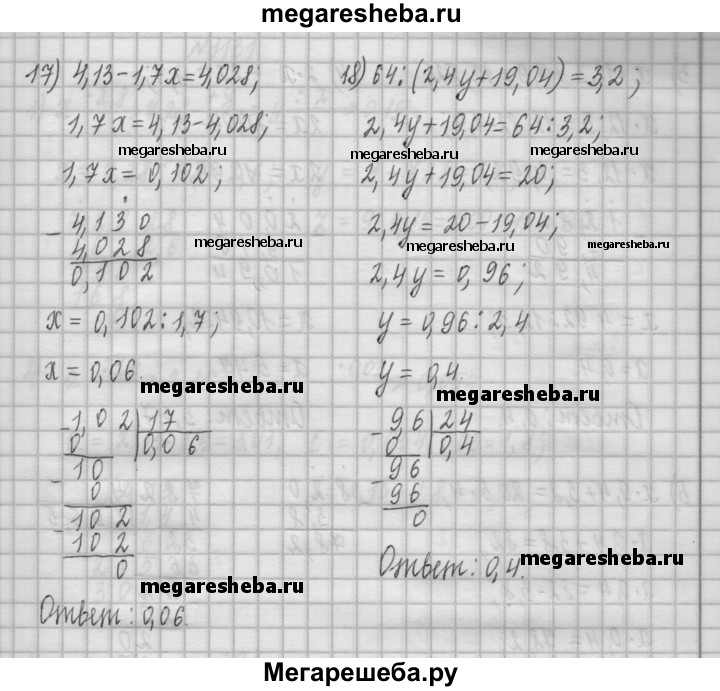 megaresheba.ru
17) 4,13-1,7x=4,028;
1,7x=4,13-4,028;
megaresheba.ru
1,7x=0,102;
- 4,130
4,028
0,102
megaresheba.ru
x=0,102:1,7;
x=0,06.
megaresheba.ru
-1,02 | 17
0 | 0,06
- 10
0
- 102
102
0
megaresheba.ru
Ответ: 0,06.
18) 64:(2,4y+19,04)=3,2;
2,4y+19,04=64:3,2;
megaresheba.ru megaresheba.ru
2,4y+19,04=20;
2,4y=20-19,04;
megaresheba.ru megaresheba.ru
2,4y=0,96;
y=0,96:2,4
y=0,4.
megaresheba.ru
- 9,6 | 24
0 | 0,4
- 96
96
0
Ответ: 0,4.
megaresheba.ru
Мегарешеба.ру